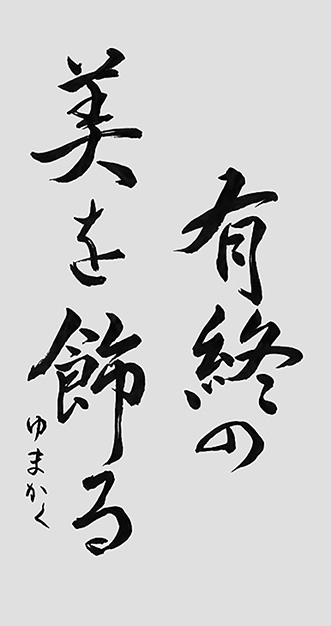 有終の
美を飾る
ゆまかく